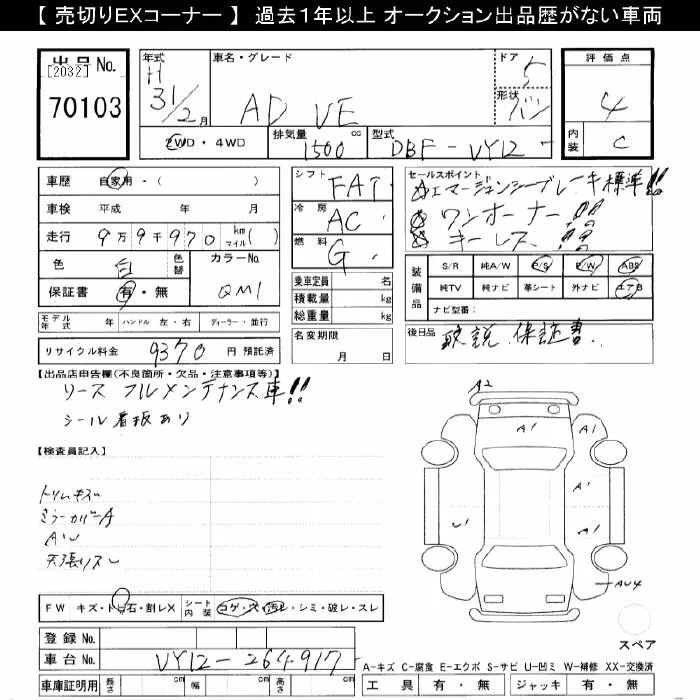 【 売切りEXコーナー 】 過去1年以上 オークション出品歴がない車両
出品 No. [2032] 70103
年式 H 31/2 月
車名・グレード AD VE
ドア 5
形状 バン
評価点 4
内装 C
2WD・4WD
排気量 1500 cc
型式 DBF-VY12
車歴 自家用・( )
車検 平成 年 月
走行 9万9千970 km マイル( )
色 白 色替 カラーNo. QM1
保証書 有・無
シフト FAT
冷房 AC
燃料 G
乗車定員 名
積載量 kg
総重量 kg
名変期限 月 日
セールスポイント
エマージェンシーブレーキ標準!!
ワンオーナー!!
キーレス!!
装備品 S/R 純A/W P/S P/W ABS
純TV 純ナビ 革シート 外ナビ エアB
ナビ型番:
後日品 取説 保証書
モデル年式 年 ハンドル 左・右 ディーラー・並行
リサイクル料金 9370 円 預託済
【出品店申告欄(不良箇所・欠品・注意事項等)】
リース フルメンテナンス車!!
シール看板あり
【検査員記入】
トリムキズ
ミラーカバーA
天張り
A2
A1 A1
U1 A1
A1
AU4
スペア
FW キズ・トビ石・割レX シート内装 コゲ・穴・汚レ・シミ・破レ・スレ
登録 No.
車台 No. VY12-264917
A-キズ C-腐食 E-エクボ S-サビ U-凹ミ W-補修 XX-交換済
車庫証明用 長さ cm 幅 cm 高さ cm
工具 有・無 ジャッキ 有・無